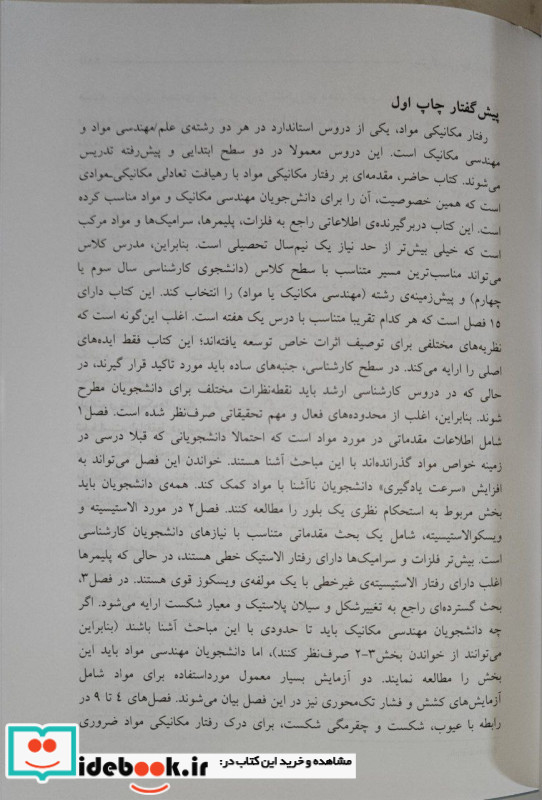 پیش‌گفتار چاپ اول
رفتار مکانیکی مواد، یکی از دروس استاندارد در هر دو رشته‌ی علم/مهندسی مواد و
مهندسی مکانیک است. این دروس معمولا در دو سطح ابتدایی و پیش‌رفته تدریس
می‌شوند. کتاب حاضر، مقدمه‌ای بر رفتار مکانیکی مواد با رهیافت تعادلی مکانیکی-موادی
است که همین خصوصیت، آن را برای دانش‌جویان مهندسی مکانیک و مواد مناسب کرده
است. این کتاب دربرگیرنده‌ی اطلاعاتی راجع به فلزات، پلیمرها، سرامیک‌ها و مواد مرکب
است که خیلی بیش‌تر از حد نیاز یک نیم‌سال تحصیلی است. بنابراین، مدرس کلاس
می‌تواند مناسب‌ترین مسیر متناسب با سطح کلاس (دانشجوی کارشناسی سال سوم یا
چهارم) و پیش‌زمینه‌ی رشته (مهندسی مکانیک یا مواد) را انتخاب کند. این کتاب دارای
۱۵ فصل است که هر کدام تقریبا متناسب با درس یک هفته است. اغلب این‌گونه است که
نظریه‌های مختلفی برای توصیف اثرات خاص توسعه یافته‌اند؛ این کتاب فقط ایده‌های
اصلی را ارایه می‌کند. در سطح کارشناسی، جنبه‌های ساده باید مورد تاکید قرار گیرند، در
حالی که در دروس کارشناسی ارشد باید نقطه‌نظرات مختلف برای دانشجویان مطرح
شوند. بنابراین، اغلب از محدوده‌های فعال و مهم تحقیقاتی صرف‌نظر شده است. فصل۱
شامل اطلاعات مقدماتی در مورد مواد است که احتمالا دانشجویانی که قبلا درسی در
زمینه خواص مواد گذرانده‌اند با این مباحث آشنا هستند. خواندن این فصل می‌تواند به
افزایش «سرعت یادگیری» دانشجویان ناآشنا با مواد کمک کند. همه‌ی دانشجویان باید
بخش مربوط به استحکام نظری یک بلور را مطالعه کنند. فصل۲ در مورد الاستیسیته و
ویسکوالاستیسیته، شامل یک بحث مقدماتی متناسب با نیازهای دانشجویان کارشناسی
است. بیش‌تر فلزات و سرامیک‌ها دارای رفتار الاستیک خطی هستند، در حالی که پلیمرها
اغلب دارای رفتار الاستیسیته‌ی غیرخطی با یک مولفه‌ی ویسکوز قوی هستند. در فصل۳،
بحث گسترده‌ای راجع به تغییرشکل و سیلان پلاستیک و معیار شکست ارایه می‌شود. اگر
چه دانشجویان مهندسی مکانیک باید تا حدودی با این مباحث آشنا باشند (بنابراین
می‌توانند از خواندن بخش۳-۲ صرف‌نظر کنند)، اما دانشجویان مهندسی مواد باید این
بخش را مطالعه نمایند. دو آزمایش بسیار معمول مورداستفاده برای مواد شامل
آزمایش‌های کشش و فشار تک‌محوری نیز در این فصل بیان می‌شوند. فصل‌های ۴ تا ۹ در
رابطه با عیوب، شکست و چقرمگی شکست، برای درک رفتار مکانیکی مواد ضروری
مشاهده و خرید این کتاب در:
idebook.ir